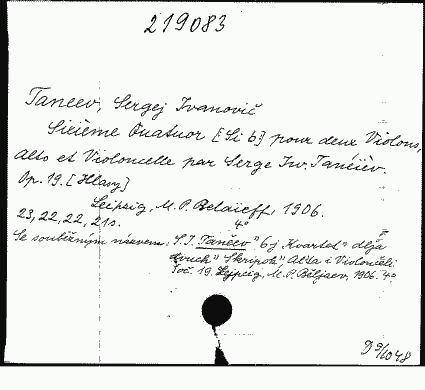 219083
Taneev, Sergej Ivanovič
Sixième Quatuor [Si b] pour deux Violons,
Alto et Violoncelle par Serge Iw. Tanéièv.
Op. 19. [Hlasy]
Leipzig, M. P. Belaieff, 1906.
23, 22, 22, 21 s. 4°
Se souběžným názvem: S. I. Taněev "6j Kvartet" dlja
dvuch" Skripok", Al'ta i Violončeli
Soč. 19. Lejpcig, M. P. Běljaev, 1906. 4°